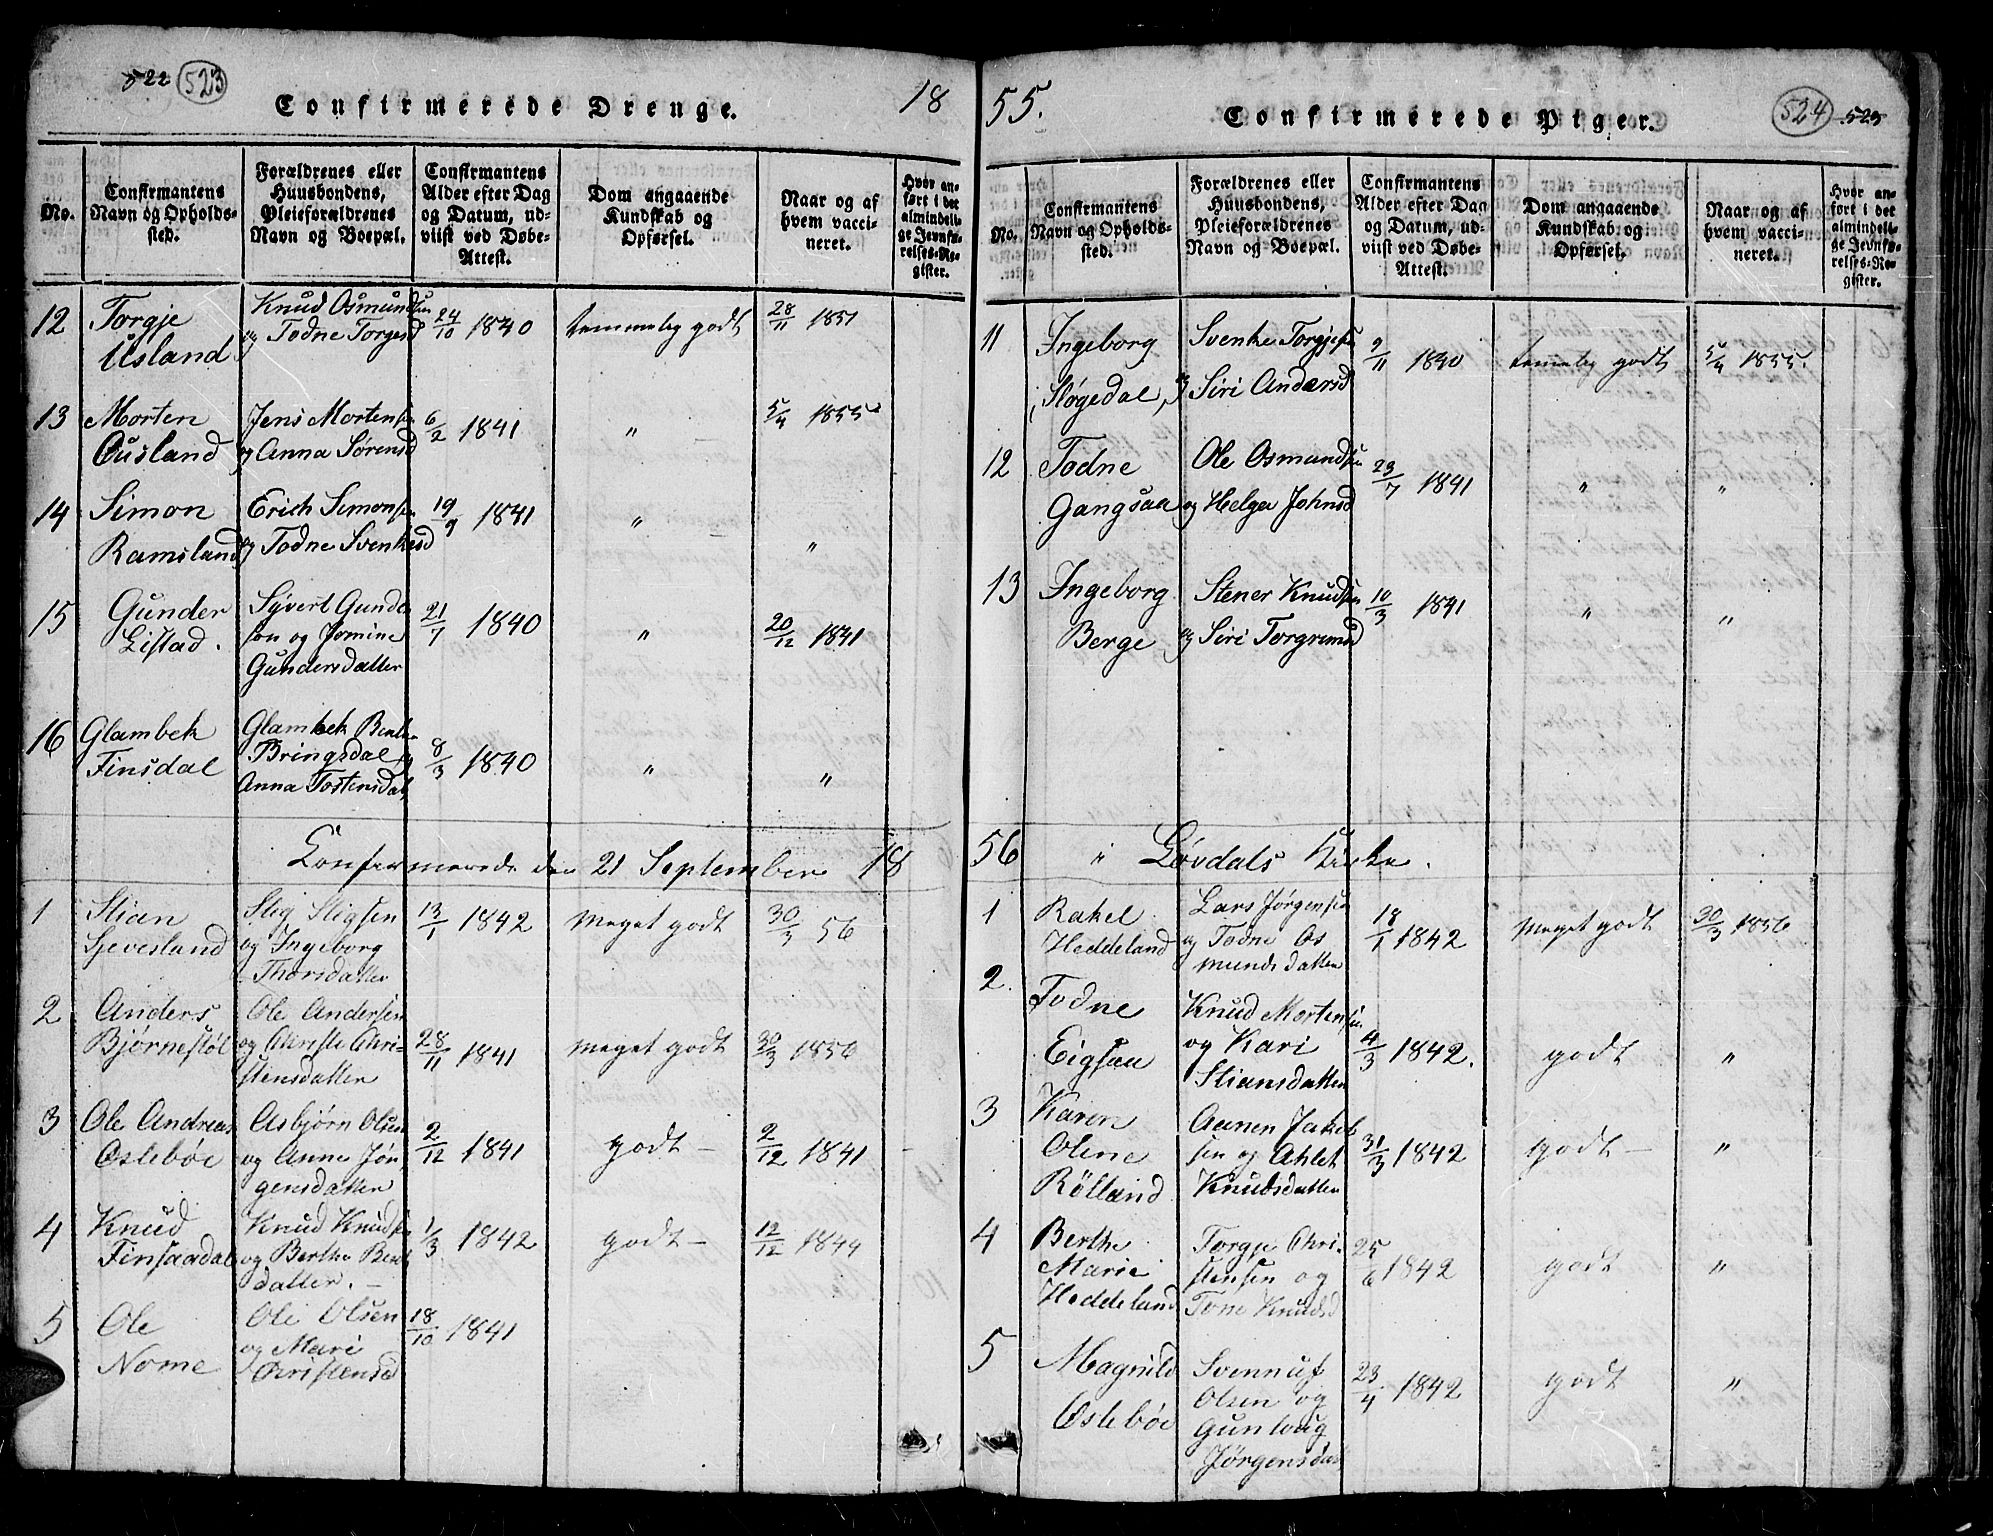 522 523
Confirmerede Drenge.
18
No.
Confirmantens Navn og Opholds-sted.
Forældrenes eller Huusbondens, Pleieforældrenes Navn og Boepæl.
Confirmantens Alder efter Dag og Datum, ud-viist ved Døbe-Attest.
Dom angaaende Kundskab og Opførsel.
Naar og af hvem vacci-neret.
Hvor an-ført i det almindeli-ge Jevnfø-relses-Re-gister.
12 Torgje Knud Osmundsen 24/10 1840 temmelig godt 28/11 1851
Usland og Todne Torgesd
13 Morten Jens Mortensen 6/2 1841 " 5/4 1855
Ousland og Anna Sørensd
14 Simon Erich Simonsen 19/9 1841 " "
Ramsland og Todne Svenkesd
15 Gunder Syvert Gunder 21/7 1840 " 20/12 1841
Listad. søn og Jomine
Gundersdatter
16 Glambek Glambek Bentsen 8/3 1840 " "
Finsdal Bringsdal og
Anna Tostensdat
Confirmerede den 21 September 18
1 Stian Stig Stigsen 13/1 1842 Meget godt 30/3 56
Gjevesland og Ingeborg
Thorsdatter
2 Anders Ole Andersen 28/11 1841 meget godt 30/3 1856
Bjørnestøl og Christe Chri-
stensdatter
3 Ole Andreas Asbjørn Olsen 2/12 1841 godt – 2/12 1841 –
Oslebøe og Anne Jør
gensdatter
4 Knud Knud Knudsen 1/3 1842 godt – 12/12 1844
Finsaadal og Berthe Bent
datter. –
5 Ole Ole Olsen 18/10 1841
Nome og Mari
Christensd
55.
Confirmerede Piger.
524 523
No.
Confirmantens Navn og Opholds-sted.
Forældrenes eller Huusbondens, Pleieforældrenes Navn og Boepæl.
Confirmantens Alder efter Dag og Datum, ud-viist ved Døbe-Attest.
Dom angaaende Kundskab og Opførsel.
Naar og af hvem vacci-neret.
Hvor an-ført i det almindeli-ge Jevnfø-relses-Re-gister.
11 Ingeborg Svenke Torgjesen 9/11 1840 temmelig godt 5/4 1855.
Høgedal, og Siri Andersd
12 Todne Ole Osmundsen 23/7 1841 " "
Gangsaa og Helga Johnsd
13 Ingeborg Stener Knudsen 10/3 1841 " "
Berge og Siri Torgrimsd
56 " Løvdals Kirke.
1 Rakel Lars Jørgensen 18/1 1842 Meget godt 30/3 1856
Heddeland og Todne Os
munds datter
2. Todne Knud Mortensen 4/3 1842. godt "
Eigsaa og Kari
Stiansdatter
3 Karen Aanen Jakob 31/3 1842 godt – "
Oline sen og Ahlet
Rölland Knudsdatter
4 Berthe Torgje Chri- 25/6 1842 godt "
Marie stensen og
Heddeland Tone Knudsd
5 Magnild Svennuf 23/4 1842 godt "
Oslebøe Olsen og
Gunloug
Jørgensdat